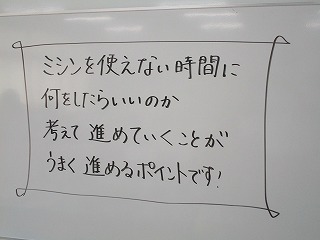 ミシンを使えない時間に
何をしたらいいのか
考えて進めていくことが
うまく進めるポイントです!